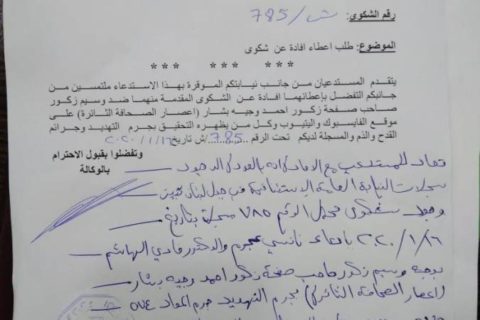 رقم الشكوى: 785/ش
الموضوع: طلب اعطاء افادة عن شكوى
*** *** ***
يتقدم المستدعيان من جانب نيابتكم الموقرة بهذا الاستدعاء ملتمسين من
جانبكم التفضل بإعطائهما افادة عن الشكوى المقدمة منهما ضد وسيم زكور
صاحب صفحة زكور احمد وجيه بشار (إعصار الصحافة الثائرة) على
موقع الفايسبوك واليتيوب وكل من يظهره التحقيق بجرم التهديد وجرائم
القدح والذم والمسجلة لديكم تحت الرقم 785/ش تاريخ
وتفضلوا بقبول الاحترام
بالوكالة
تعاد للمستدعي مع الافادة انه بالعودة الى
سجلات النيابة العامة الاستئنافية في جبل لبنان تبين
وجود شكوى تحمل الرقم ٧٨٥ مسجلة بتاريخ
٢٠٢٠/١/١٦ بادعاء نانسي عجرم والدكتور فادي الهاشم
بوجه وسيم زكور صاحب صفحة زكور احمد وجيه بشار
(اعصار الصحافة الثائرة) بجرم التهديد جرم المواد